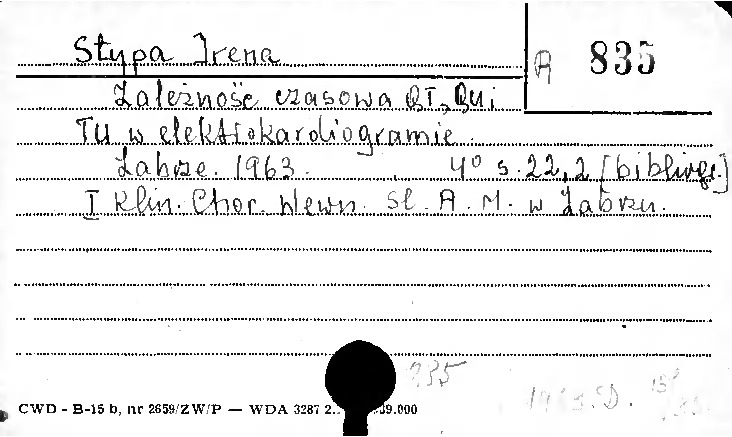 Stypa Irena
A 835
Zależność czasowa QT, QU i
TU w elektrokardiogramie.
Zabrze. 1963. 4° s. 22, 2 [bibliogr.]
I Klin. Chor. Wewn. Śl. A. M. w Zabrzu.
835
CWD - B-15 b, nr 2659/ZW/P — WDA 3287 2 39.000